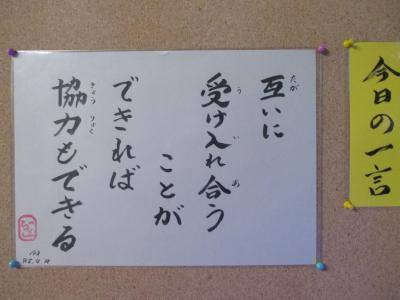 今日の一言
互いに
たが
受け入れ合う
う い あ
ことが
できれば
協力もできる
きょう りょく